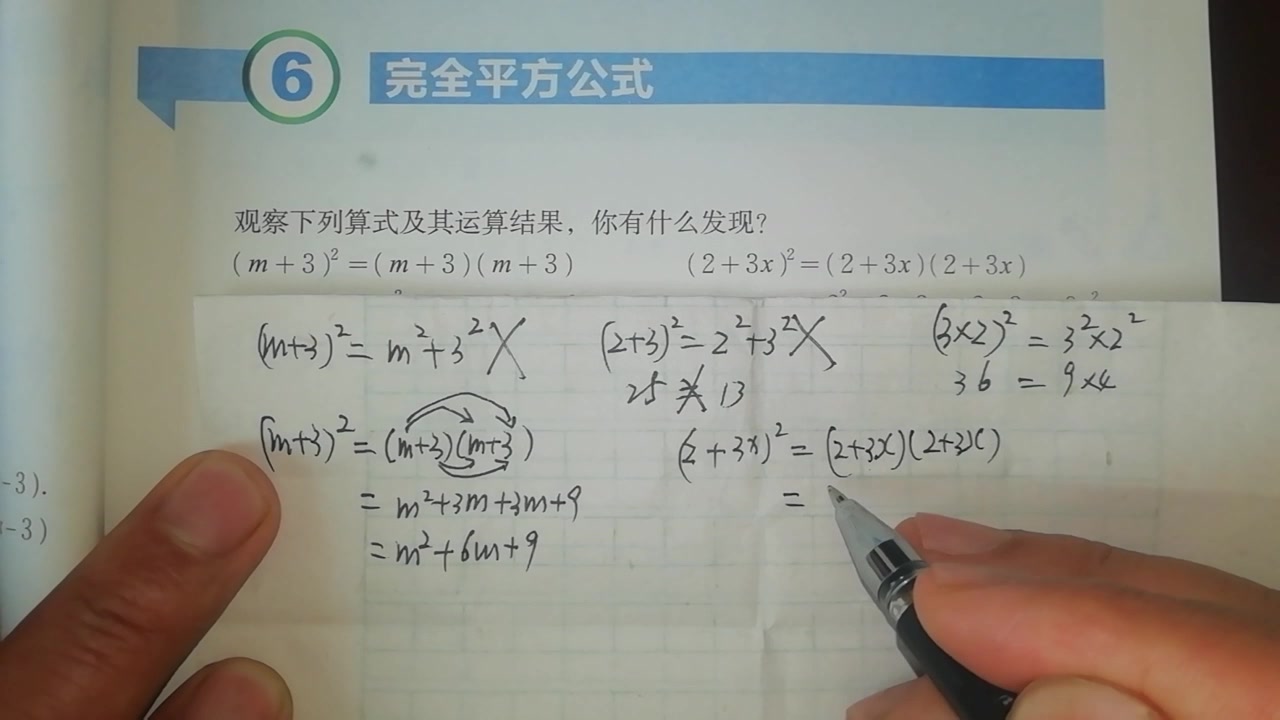 6 完全平方公式
观察下列算式及其运算结果，你有什么发现？
(m+3)²=(m+3)(m+3) (2+3x)²=(2+3x)(2+3x)
(m+3)²=m²+3² X (2+3)²=2²+3² X (3×2)²=3²×2²
25 ≠ 13 36=9×4
(m+3)²=(m+3)(m+3) (2+3x)²=(2+3x)(2+3x)
=m²+3m+3m+9 =
=m²+6m+9
-3).
-3)